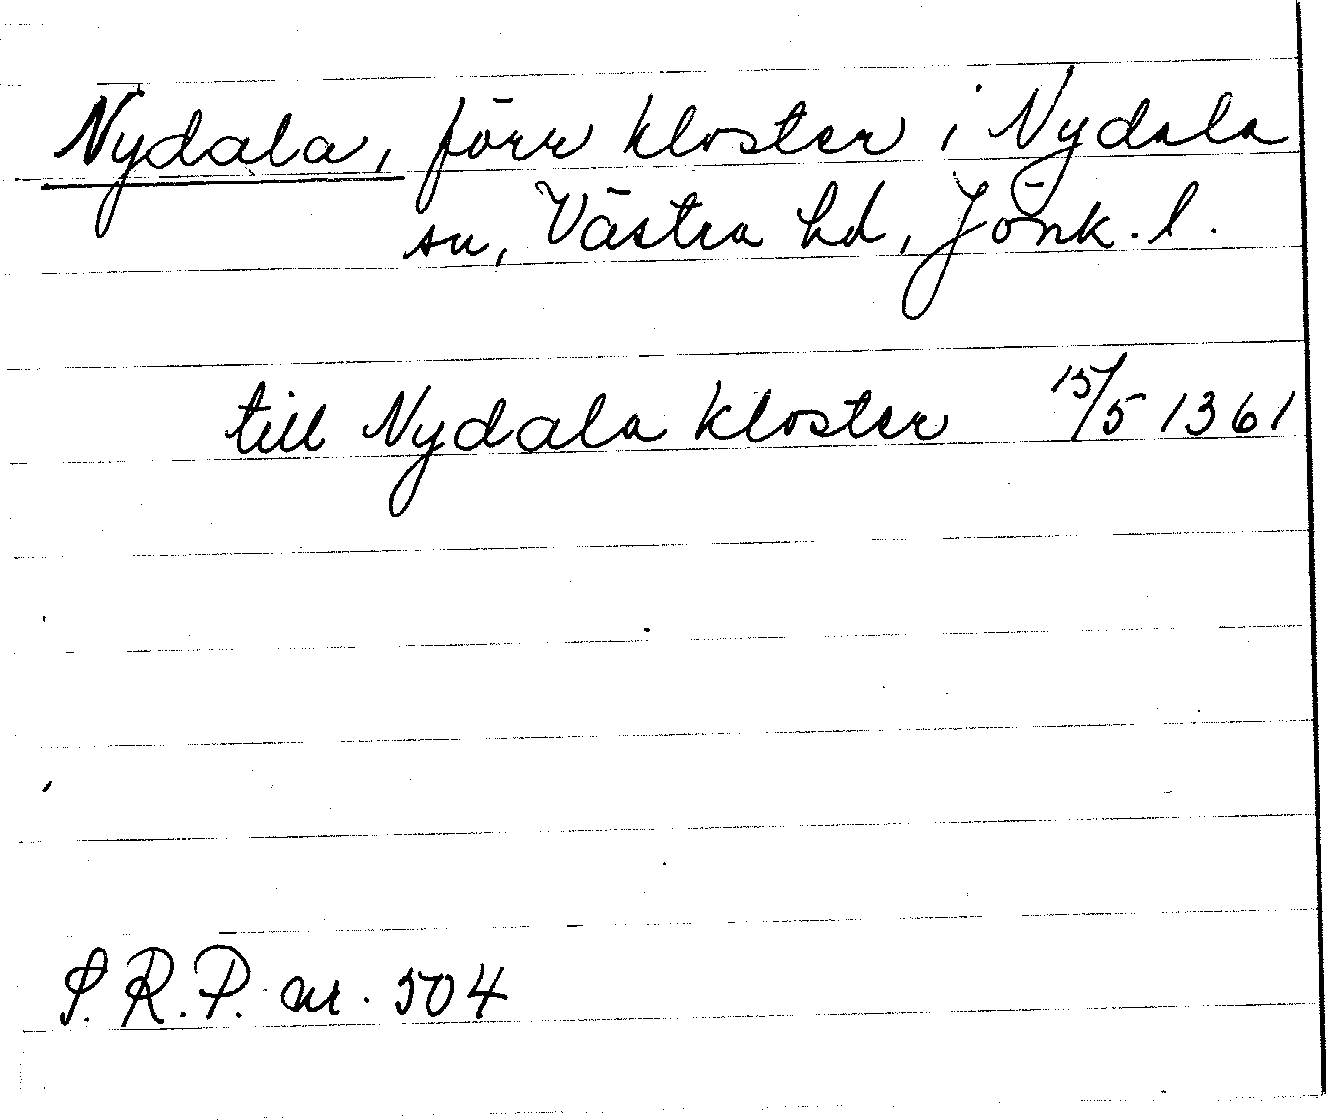 Nydala, förr kloster i Nydala
sn, Västra hd, Jönk. l.
till Nydala kloster 15/5 1361
S.R.P. nr. 504